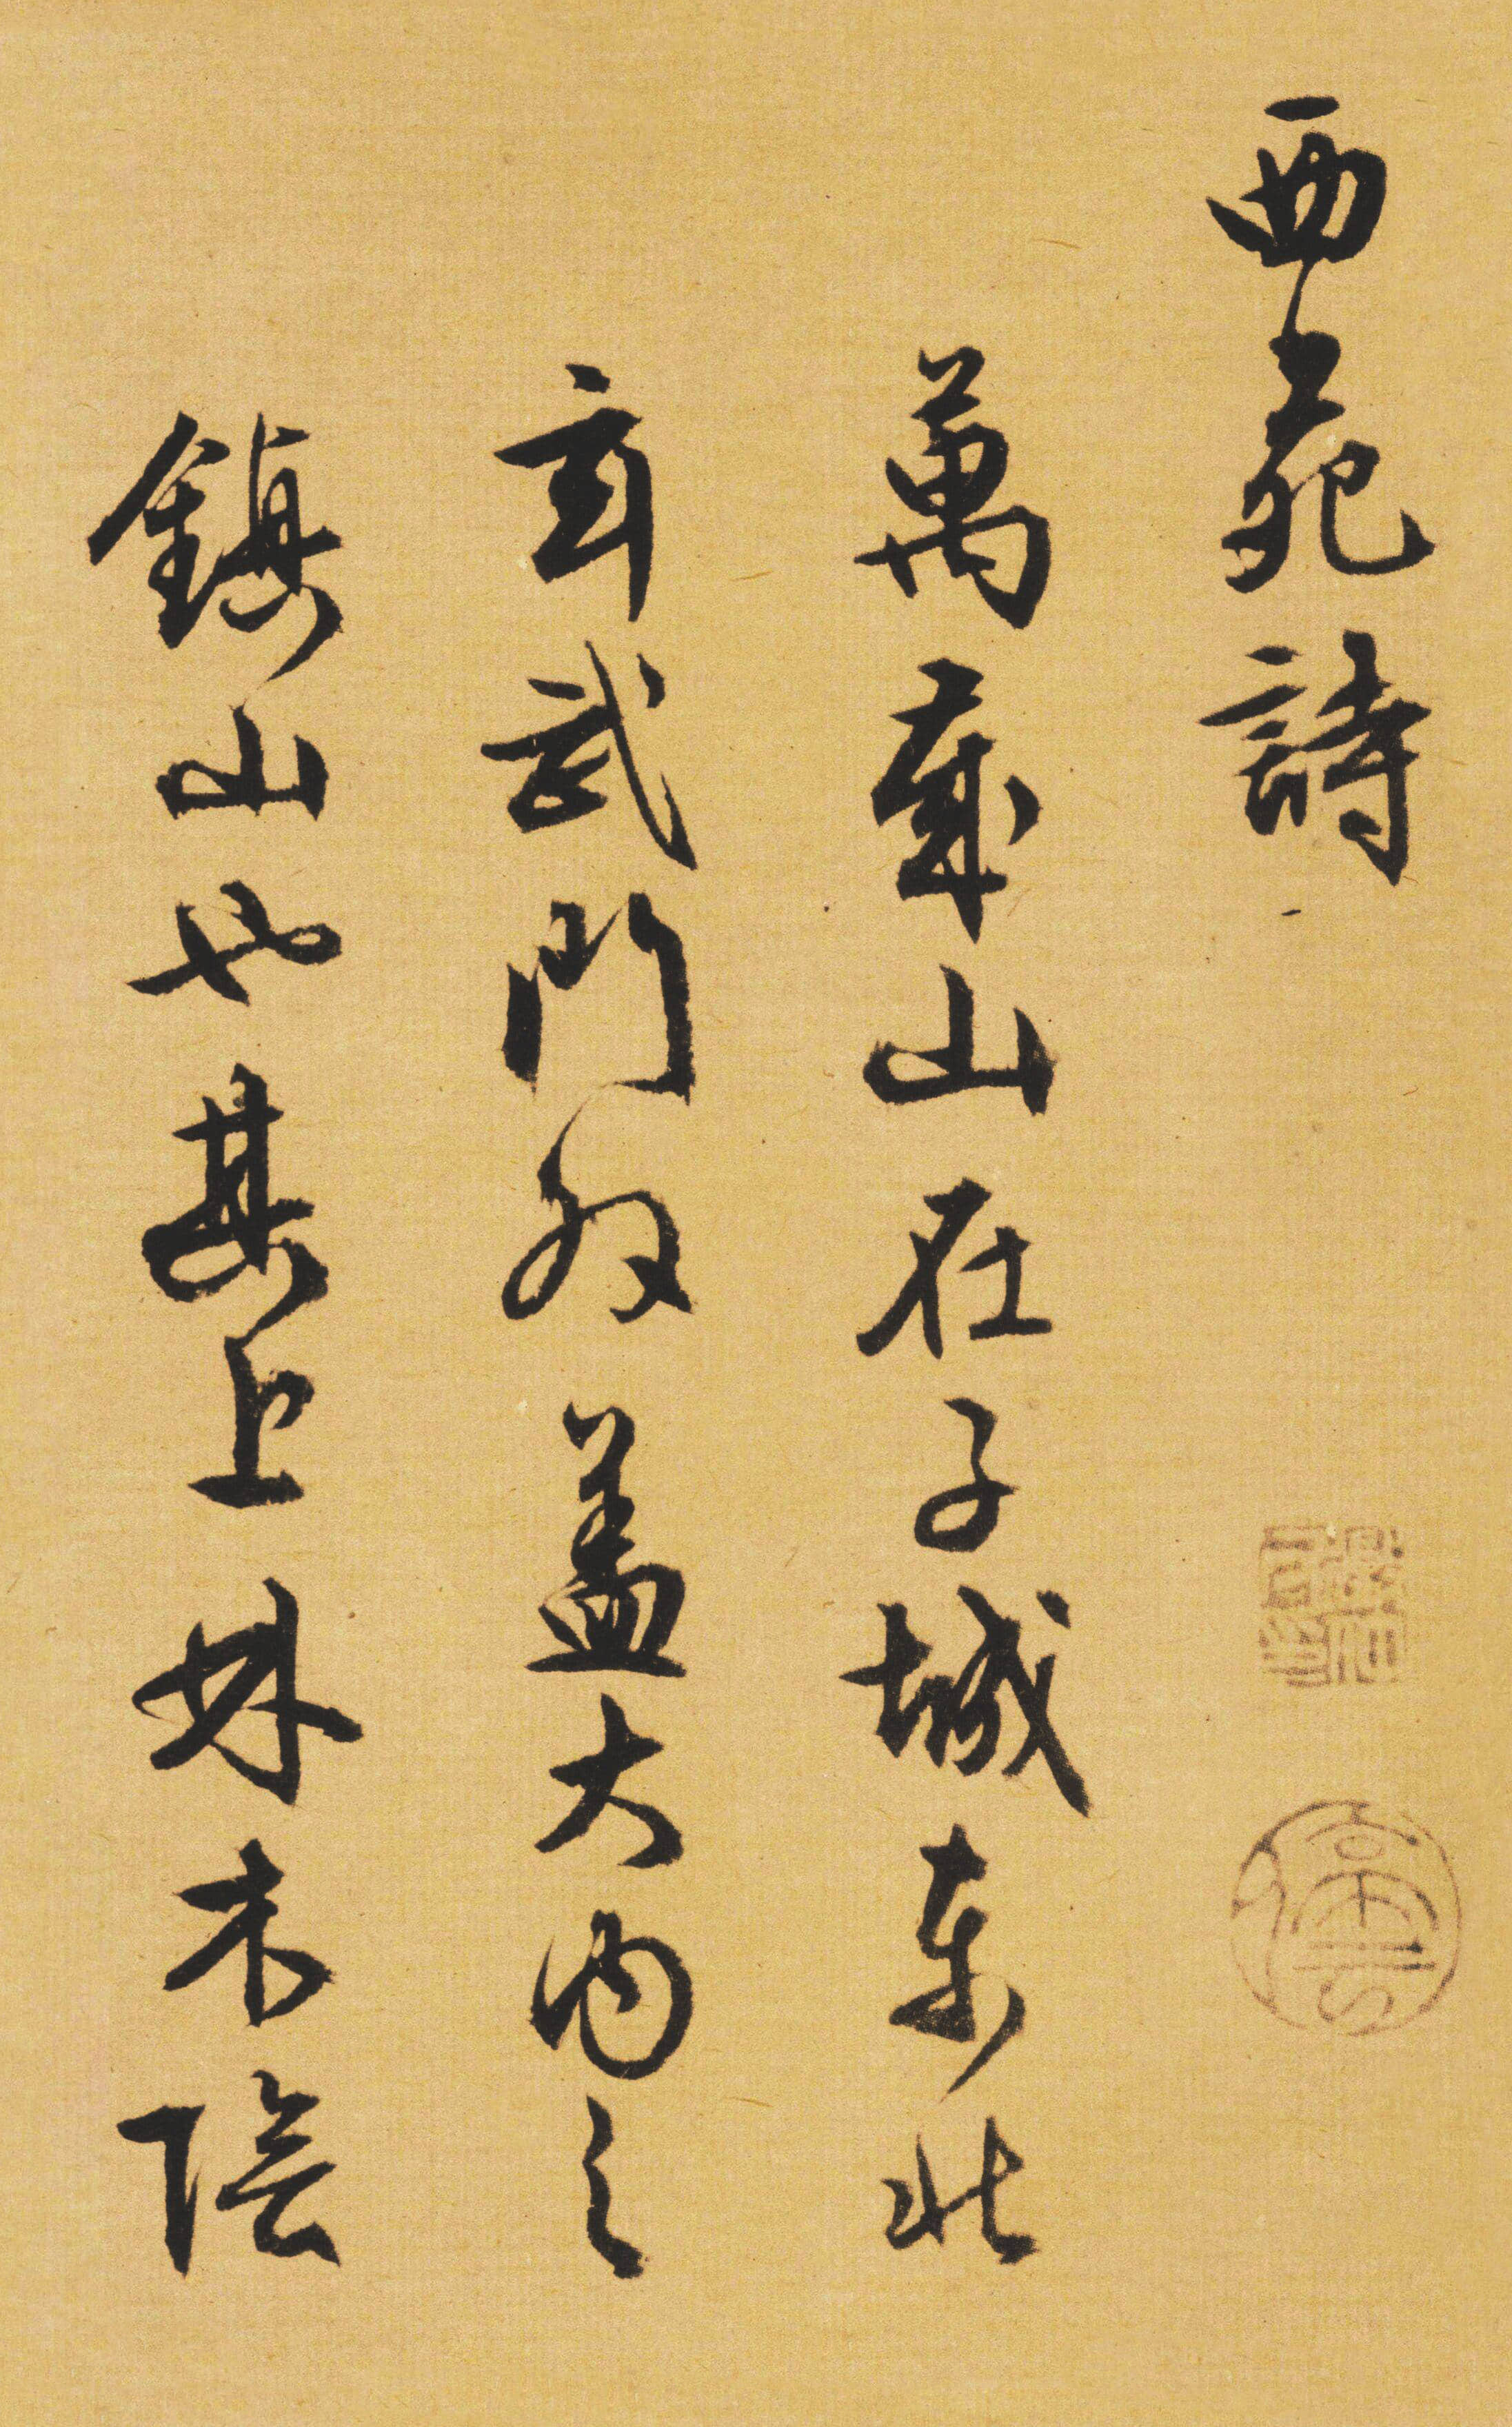 西苑詩
萬歲山在子城東北
玄武門外盖大内之
鎮山也其上林木陰